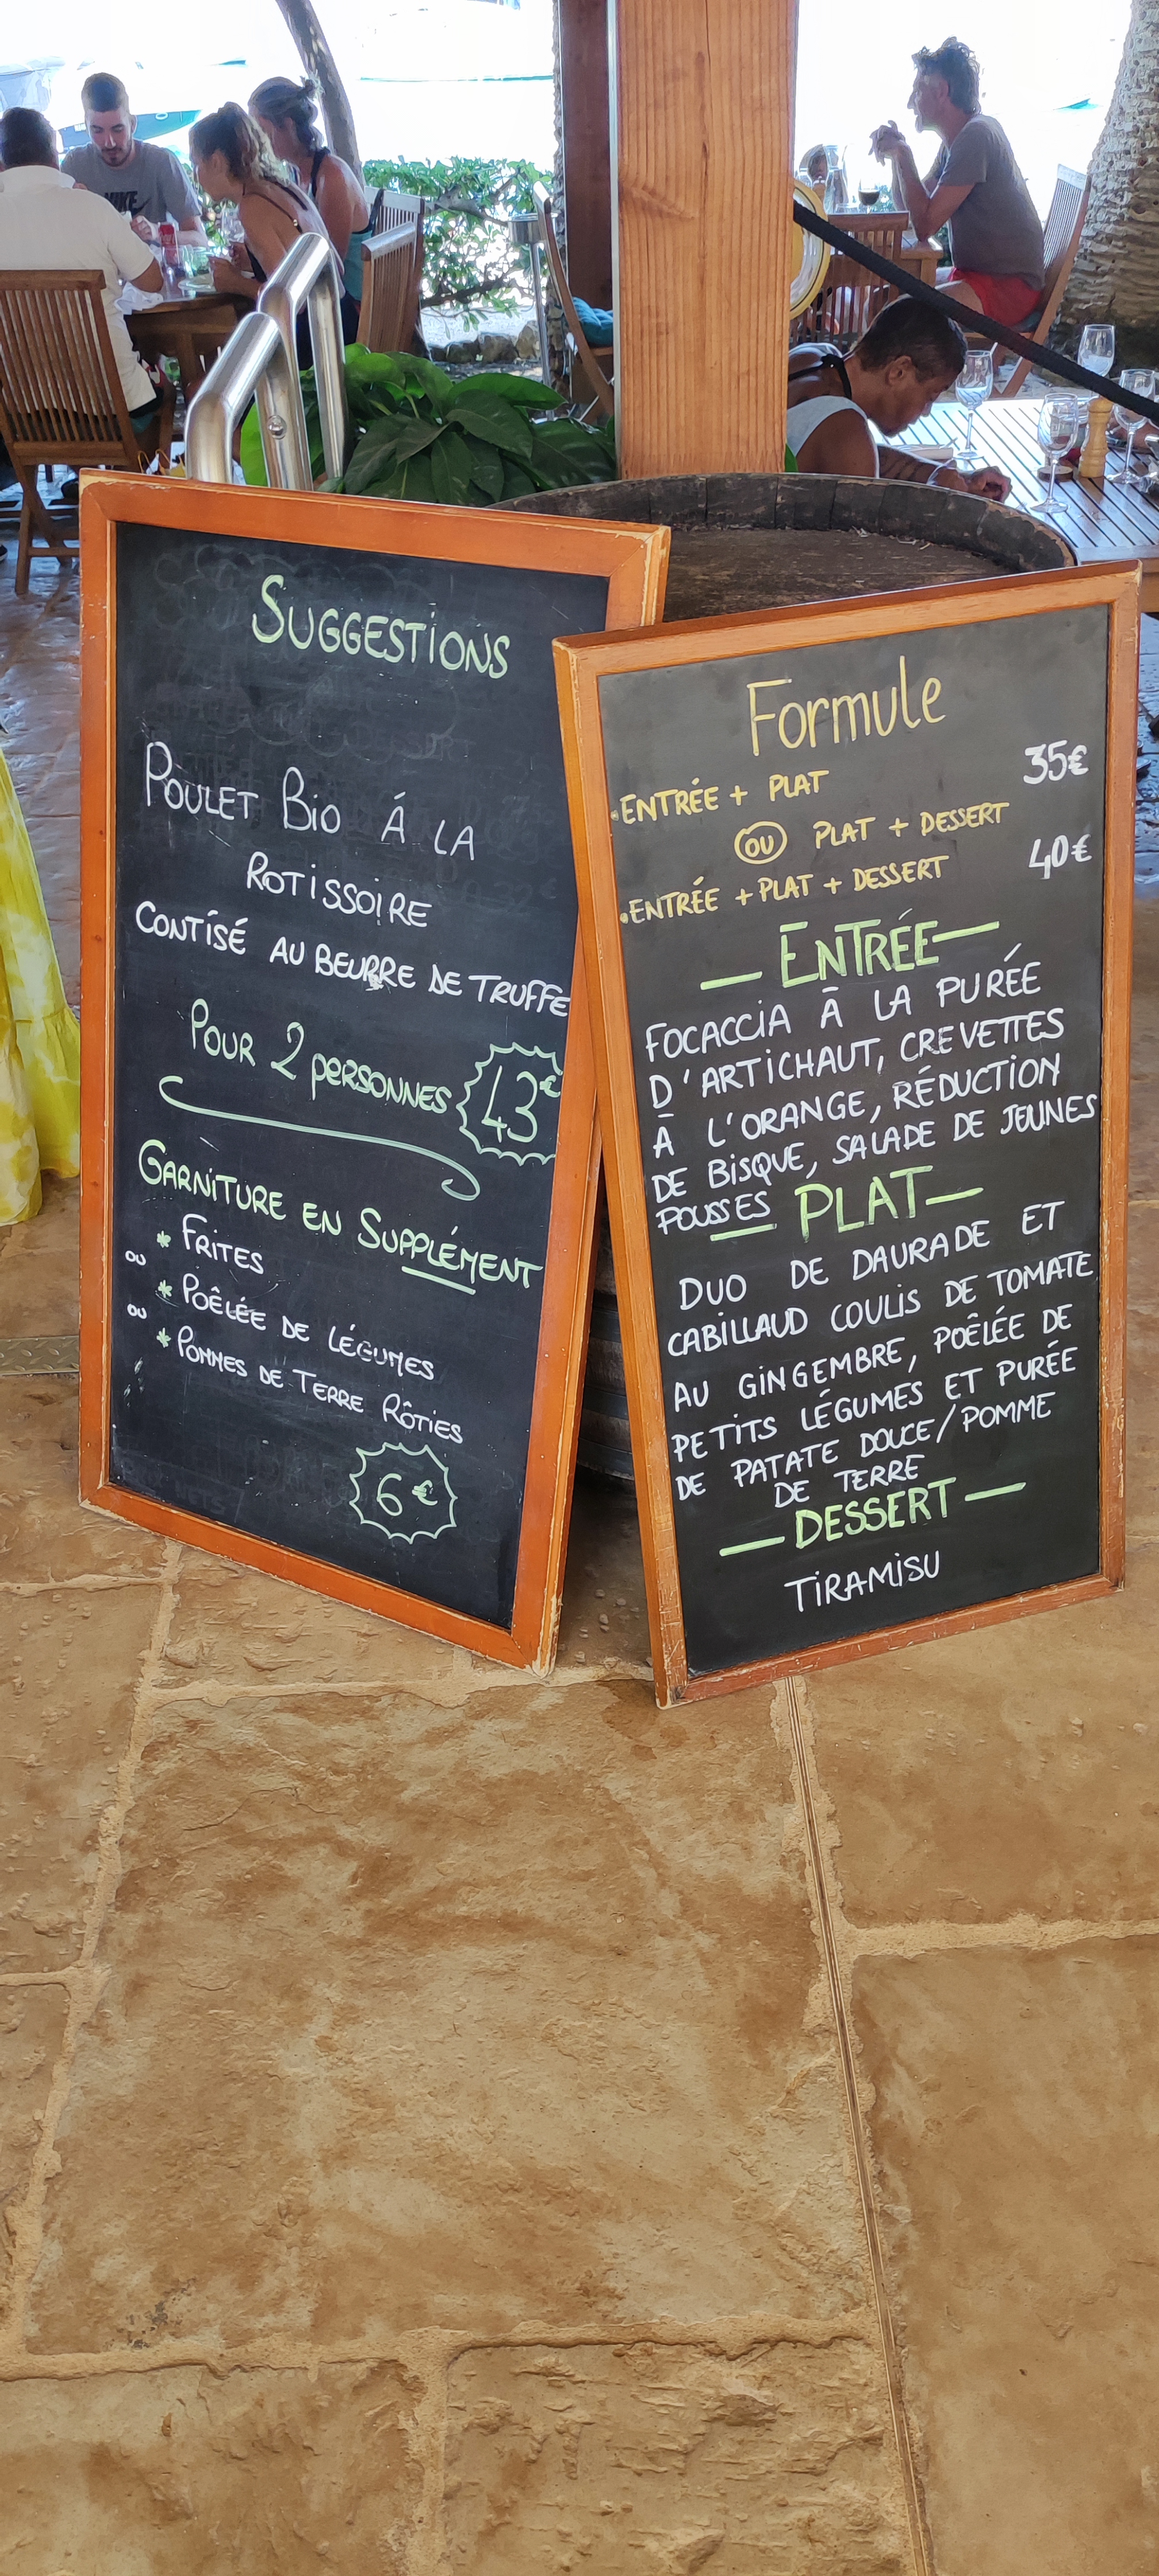 NIKE
SUGGESTIONS
POULET BIO Á LA
ROTISSOIRE
CONTÍSÉ AU BEURRE DE TRUFFE
POUR 2 PERSONNES 43€
GARNITURE EN SUPPLÉMENT
* FRITES
OU
* POÊLÉE DE LÉGUMES
OU
* POMMES DE TERRE RÔTIES
6€
Formule
35€
• ENTRÉE + PLAT
OU PLAT + DESSERT
40€
• ENTRÉE + PLAT + DESSERT
— ENTRÉE —
FOCACCIA À LA PURÉE
D'ARTICHAUT, CREVETTES
À L'ORANGE, RÉDUCTION
DE BISQUE, SALADE DE JEUNES
POUSSES
— PLAT —
DUO DE DAURADE ET
CABILLAUD COULIS DE TOMATE
AU GINGEMBRE, POÊLÉE DE
PETITS LÉGUMES ET PURÉE
DE PATATE DOUCE/POMME
DE TERRE
— DESSERT —
TIRAMISU